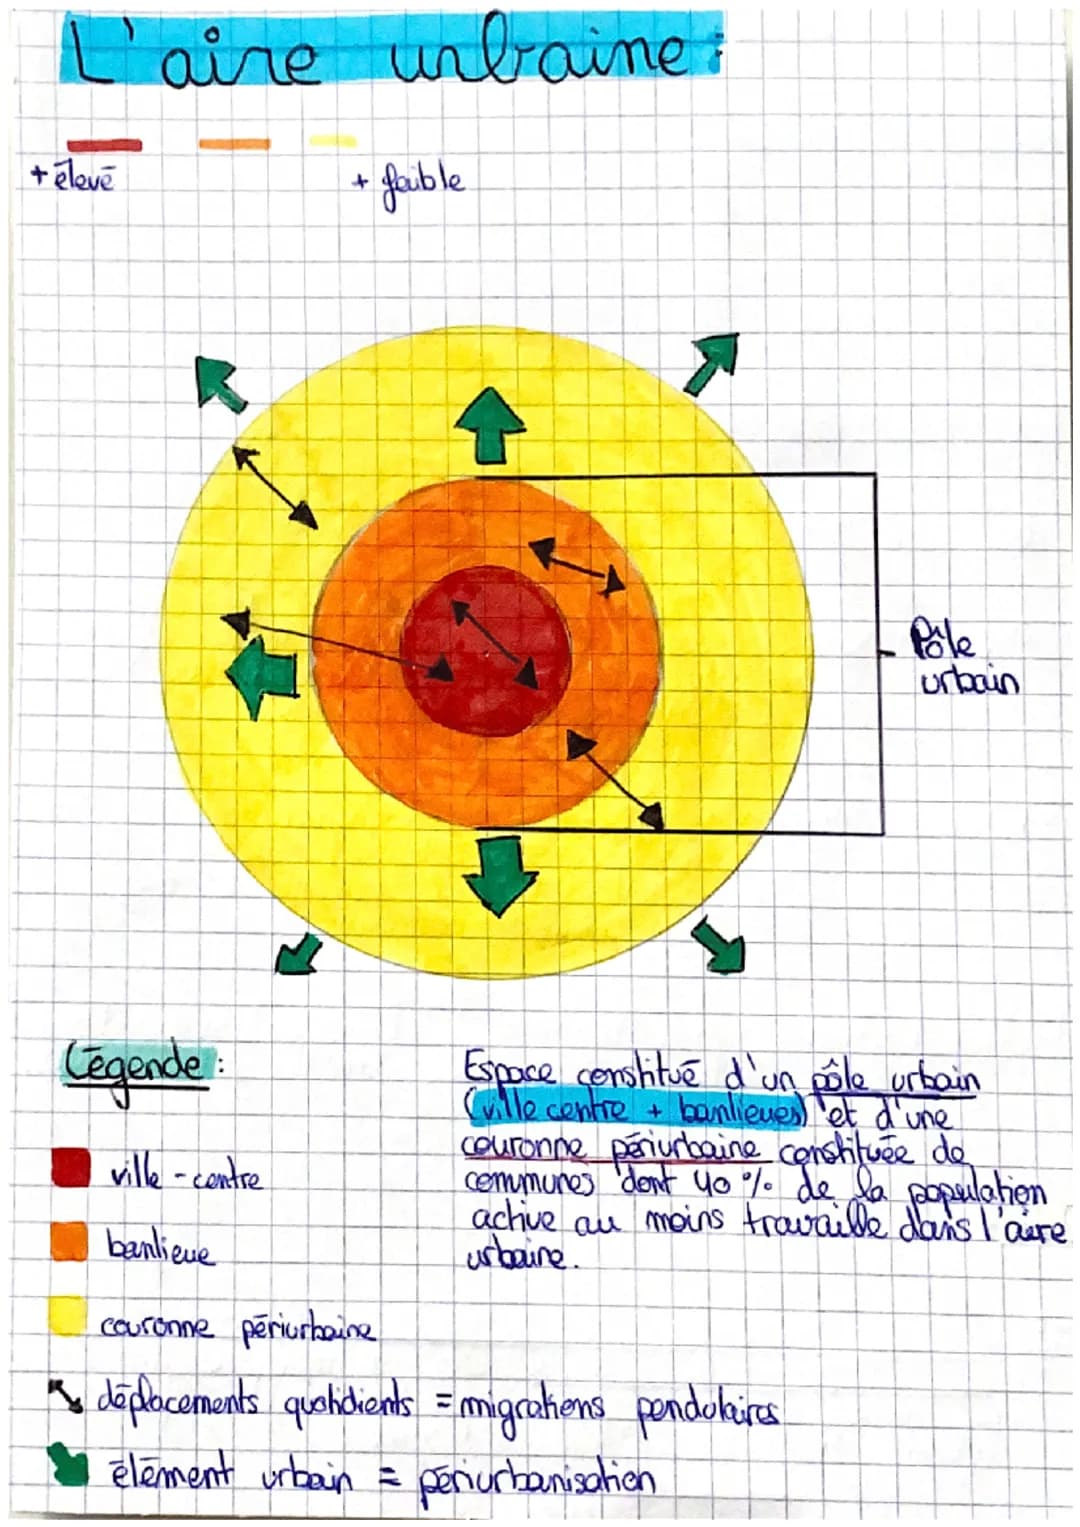 L'aire urbaine :
+ élevé
+ faible
Pôle
urbain
Légende :
ville - centre
banlieue
couronne périurbaine
déplacements quotidients = migrations pendulaires
élément urbain = périurbanisation
Espace constitué d'un pôle urbain
(ville centre + banlieues) et d'une
couronne périurbaine constituée de
communes dont 40 % de la population
active au moins travaille dans l'aire
urbaine.